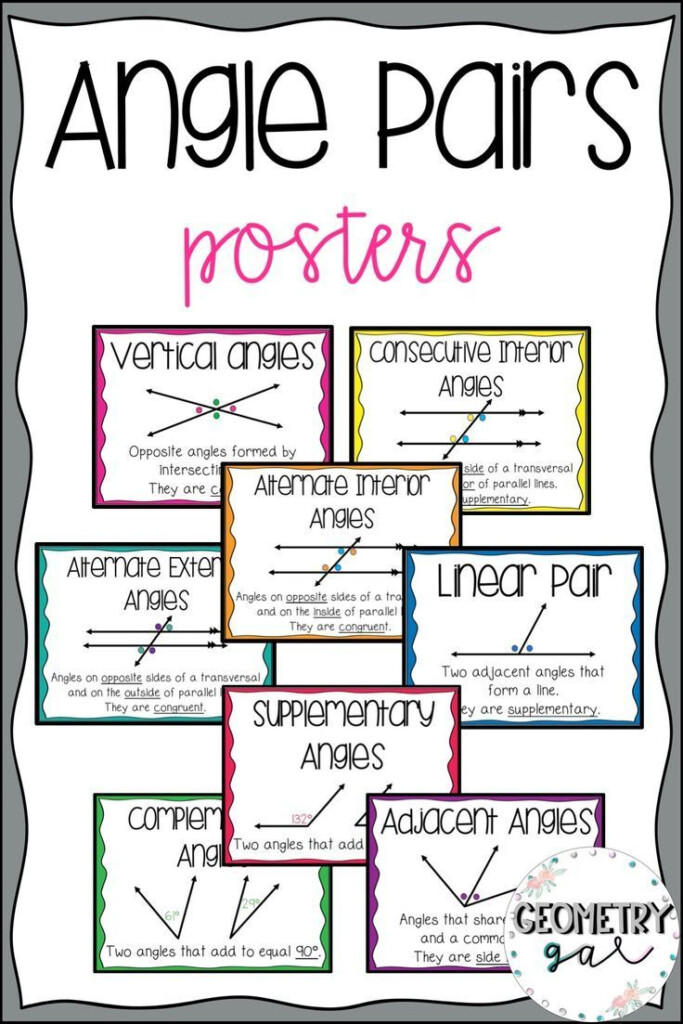 Angle Pairs
posters
Vertical Angles
Opposite angles formed by
intersecting
They are
Consecutive Interior
Angles
side of a transversal
of parallel lines.
supplementary.
Alternate Interior
Angles
Angles on opposite sides of a
and on the inside of parallel
They are congruent.
Alternate
Angles
Angles on opposite sides of a transversal
and on the outside of parallel
They are congruent.
Linear Pair
Two adjacent angles that
form a line.
supplementary.
Supplementary
Angles
132°
Two angles that add
61°
29°
Two angles that add to equal 90°.
Adjacent Angles
Angles that share
and a
They are side
GEOMETRY
gal